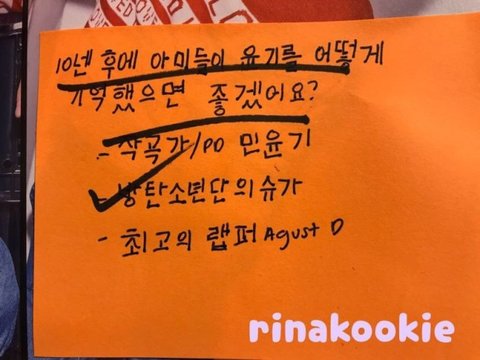 10년 후에 아미들이 윤기를 어떻게
기억했으면 좋겠어요?
- 작곡가/PD 민윤기
- 방탄소년단의 슈가
- 최고의 랩퍼 Agust D
rinakookie